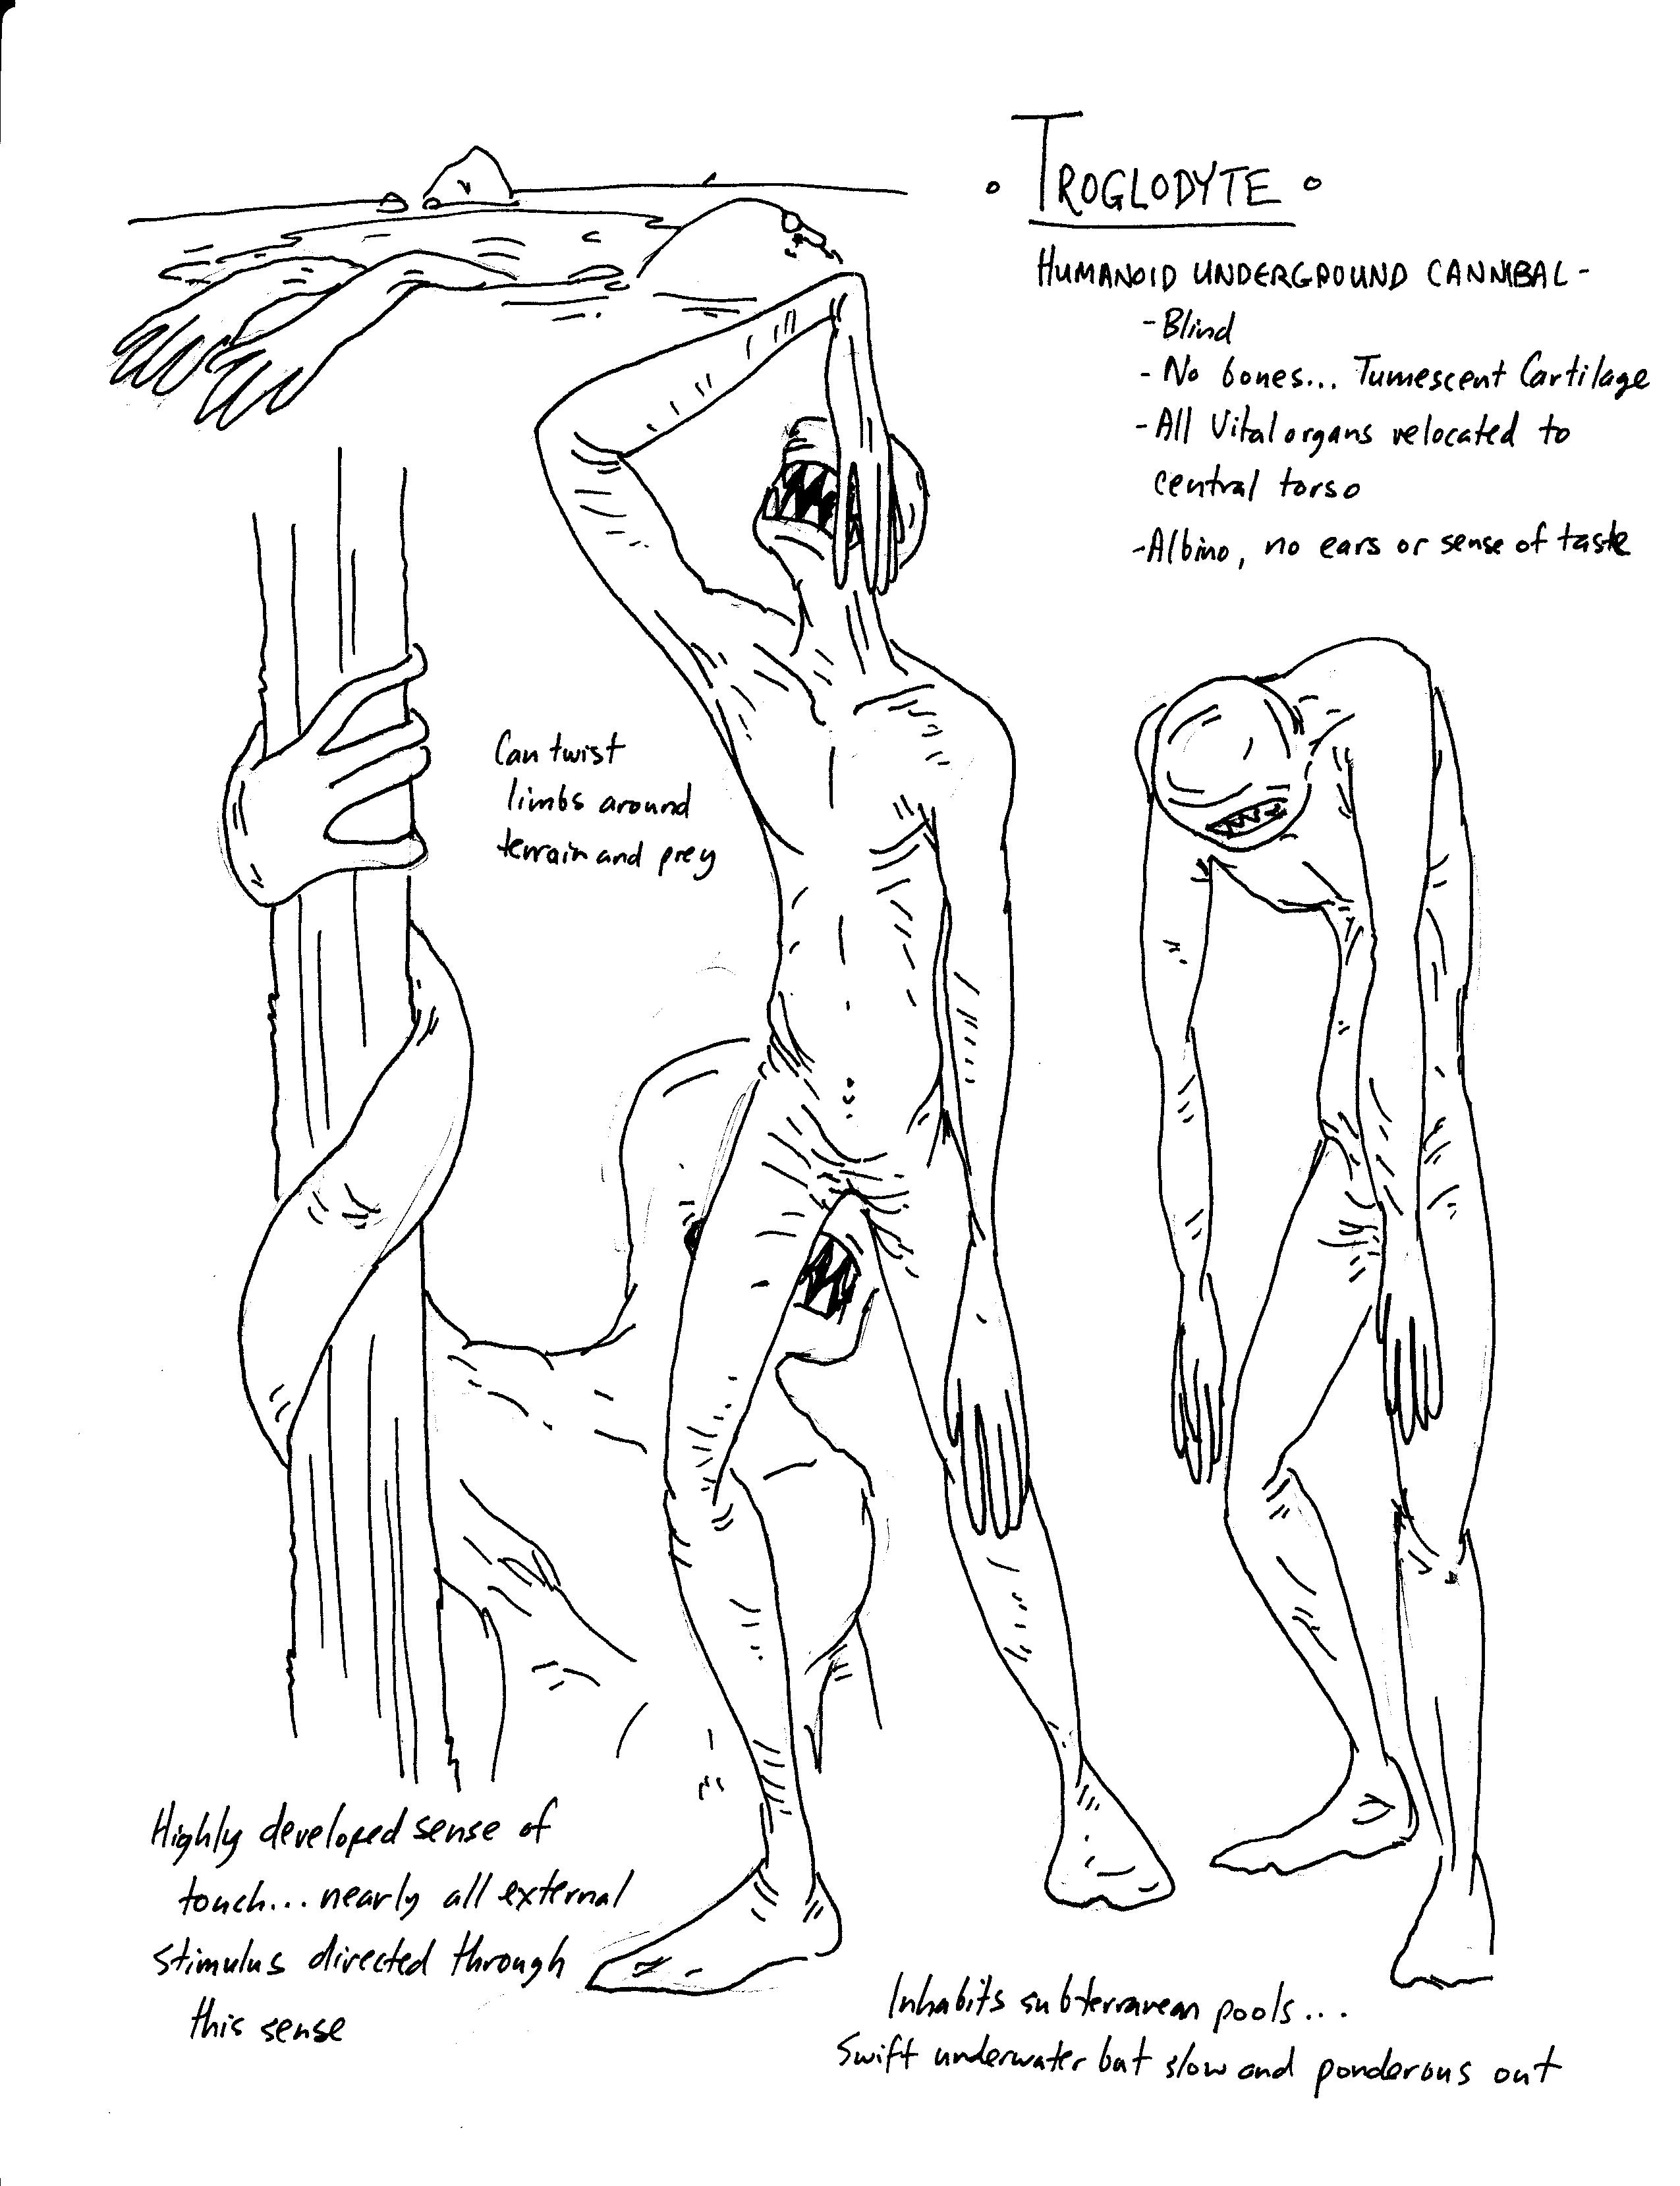 TROGLODYTE
HUMANOID UNDERGROUND CANNIBAL-
-Blind
-No bones... Tumescent Cartilage
-All Vital organs relocated to
central torso
-Albino, no ears or sense of taste
Can twist
limbs around
terrain and prey
Highly developed sense of
touch... nearly all external
stimulus directed through
this sense
Inhabits subterranean pools...
Swift underwater but slow and ponderous out